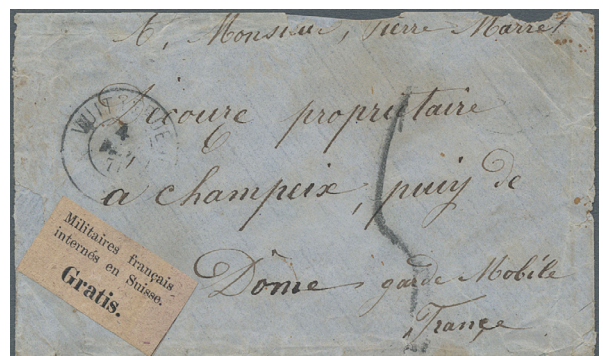 A, Monsieur, Pierre Marret
propriétaire
a champeix, puiy de
Dôme garde Mobile
France
VUITEBOEUF
Militaires français
internés en Suisse.
Gratis.